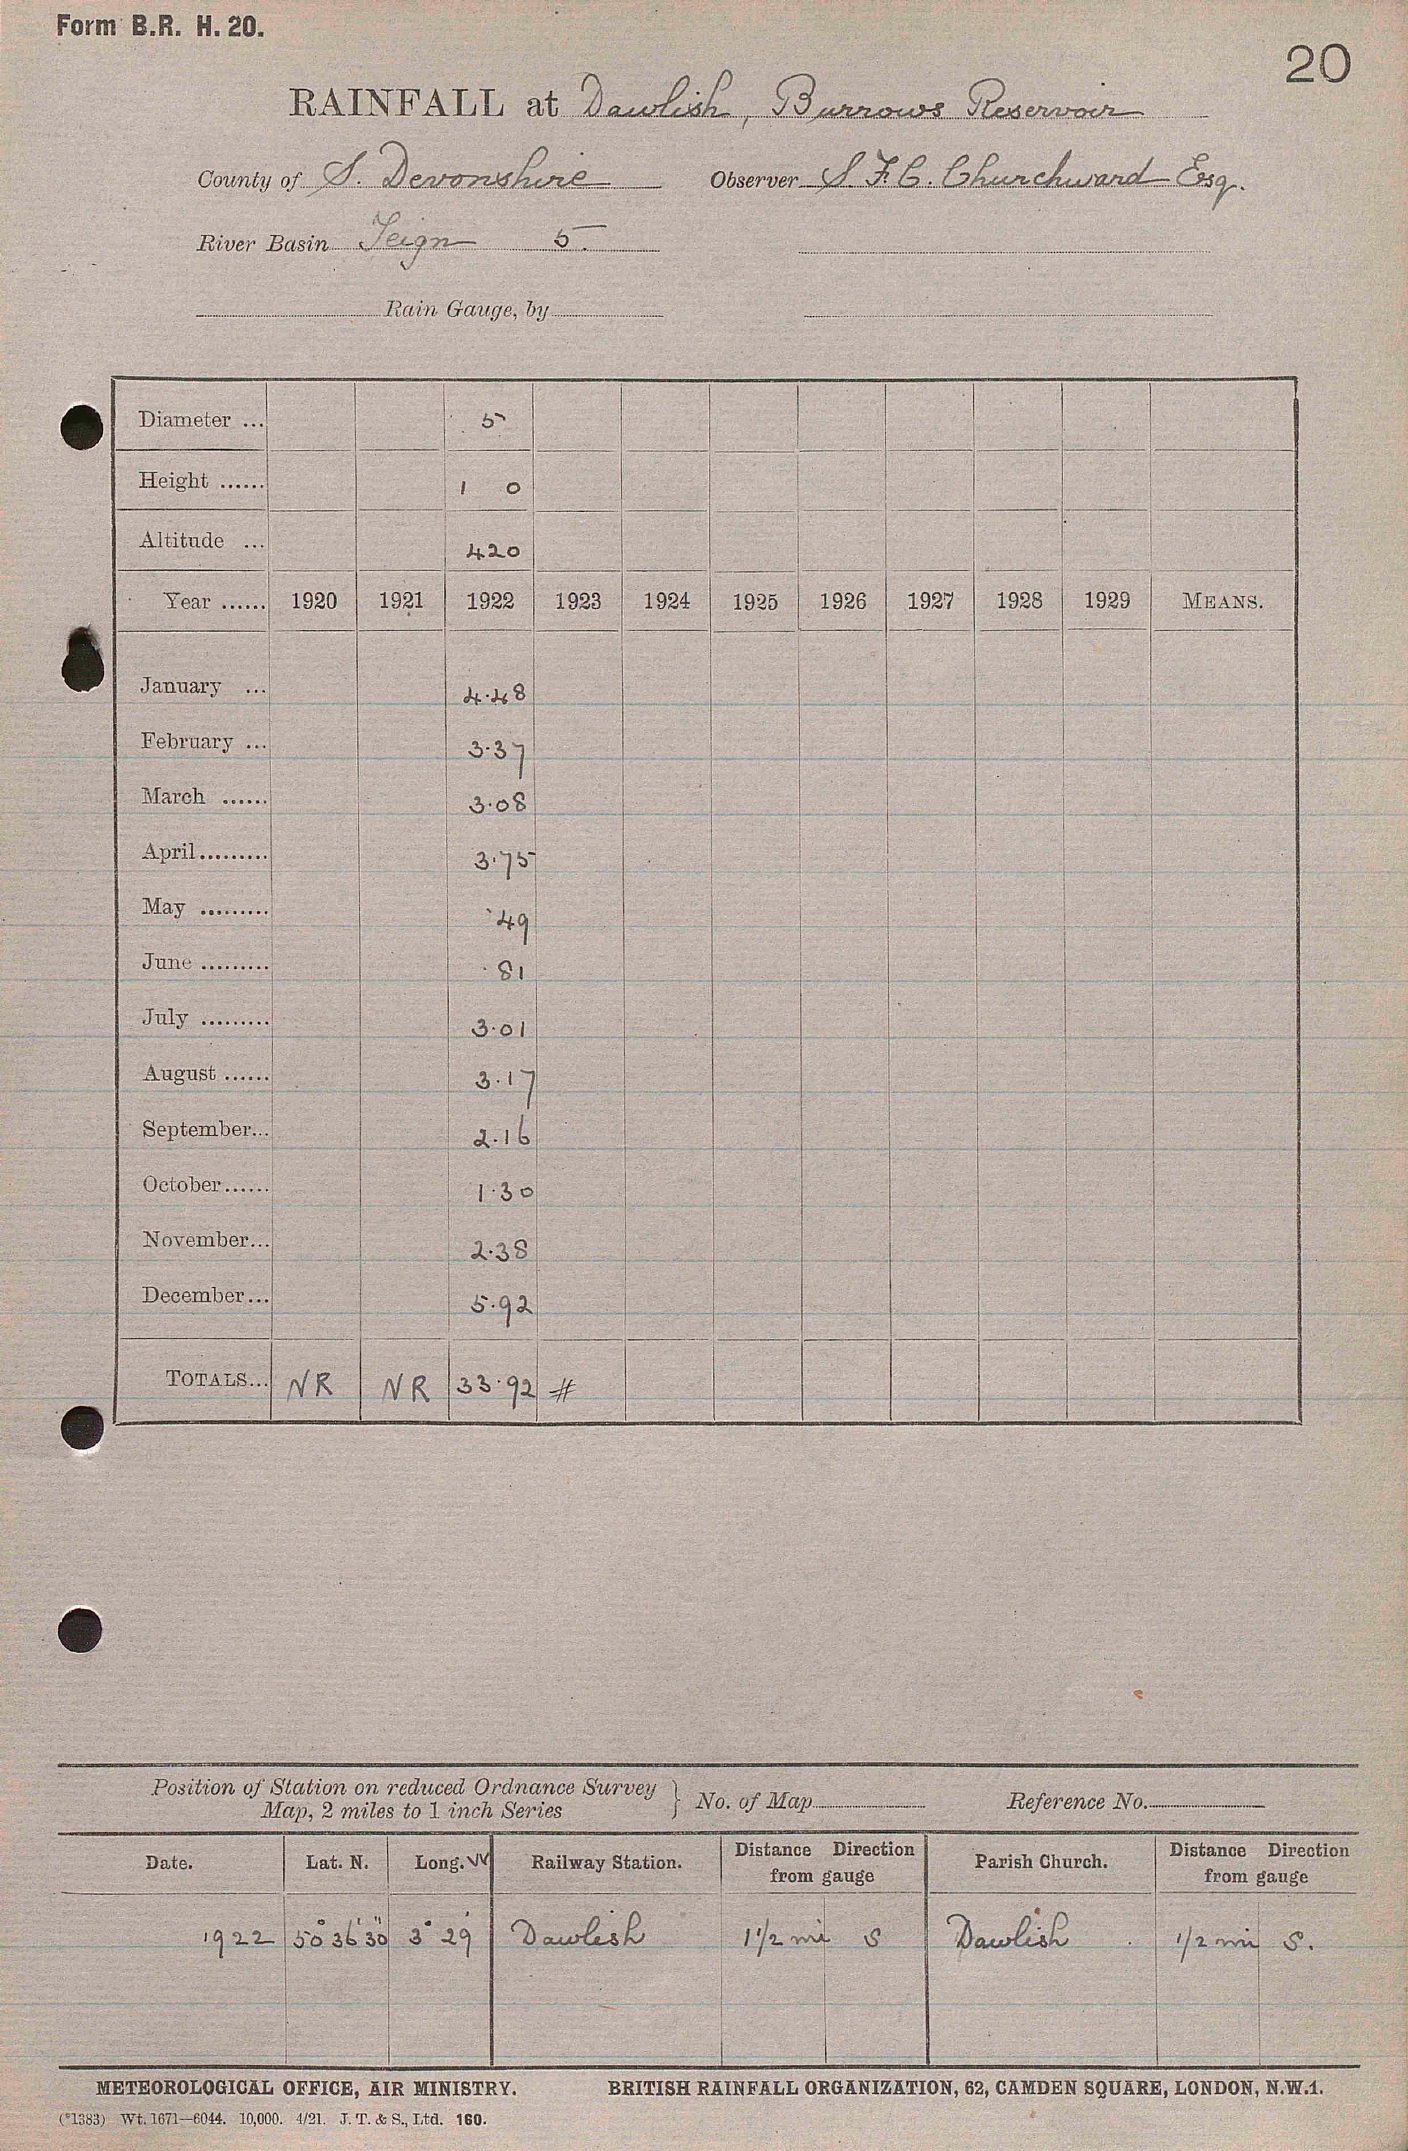 Form B.R. H. 20.
20
RAINFALL at Dawlish, Burrows Reservoir
County of S. Devonshire Observer S. F. C. Churchward Esq.
River Basin Teign 5.
Rain Gauge, by
Diameter ... 5
Height ...... 1 0
Altitude ... 420
Year ...... 1920 1921 1922 1923 1924 1925 1926 1927 1928 1929 MEANS.
January ... 4.48
February ... 3.37
March ...... 3.08
April......... 3.75
May ......... .49
June ......... .81
July ......... 3.01
August ...... 3.17
September... 2.16
October...... 1.30
November... 2.38
December... 5.92
TOTALS... NR NR 33.92 #
Position of Station on reduced Ordnance Survey
Map, 2 miles to 1 inch Series } No. of Map Reference No.
Date. Lat. N. Long. W Railway Station. Distance Direction from gauge Parish Church. Distance Direction from gauge
1922 50° 36' 30" 3° 29' Dawlish 1 1/2 mi S Dawlish 1/2 mi S.
METEOROLOGICAL OFFICE, AIR MINISTRY. BRITISH RAINFALL ORGANIZATION, 62, CAMDEN SQUARE, LONDON, N.W.1.
(*1383) Wt. 1671—6044. 10,000. 4/21. J. T. & S., Ltd. 160.